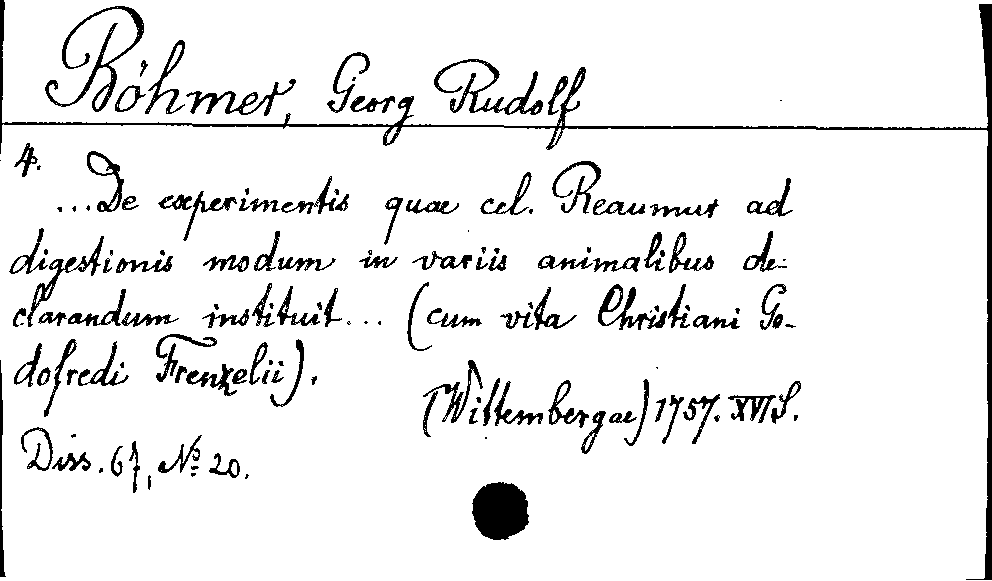 Böhmer, Georg Rudolf
4.
...De experimentis quae cel. Reaumur ad
digestionis modum in variis animalibus de-
clarandum instituit... (cum vita Christiani Go-
dofredi Frenzelii).
(Wittembergae) 1757. XVI S.
Diss. 67, No 20.